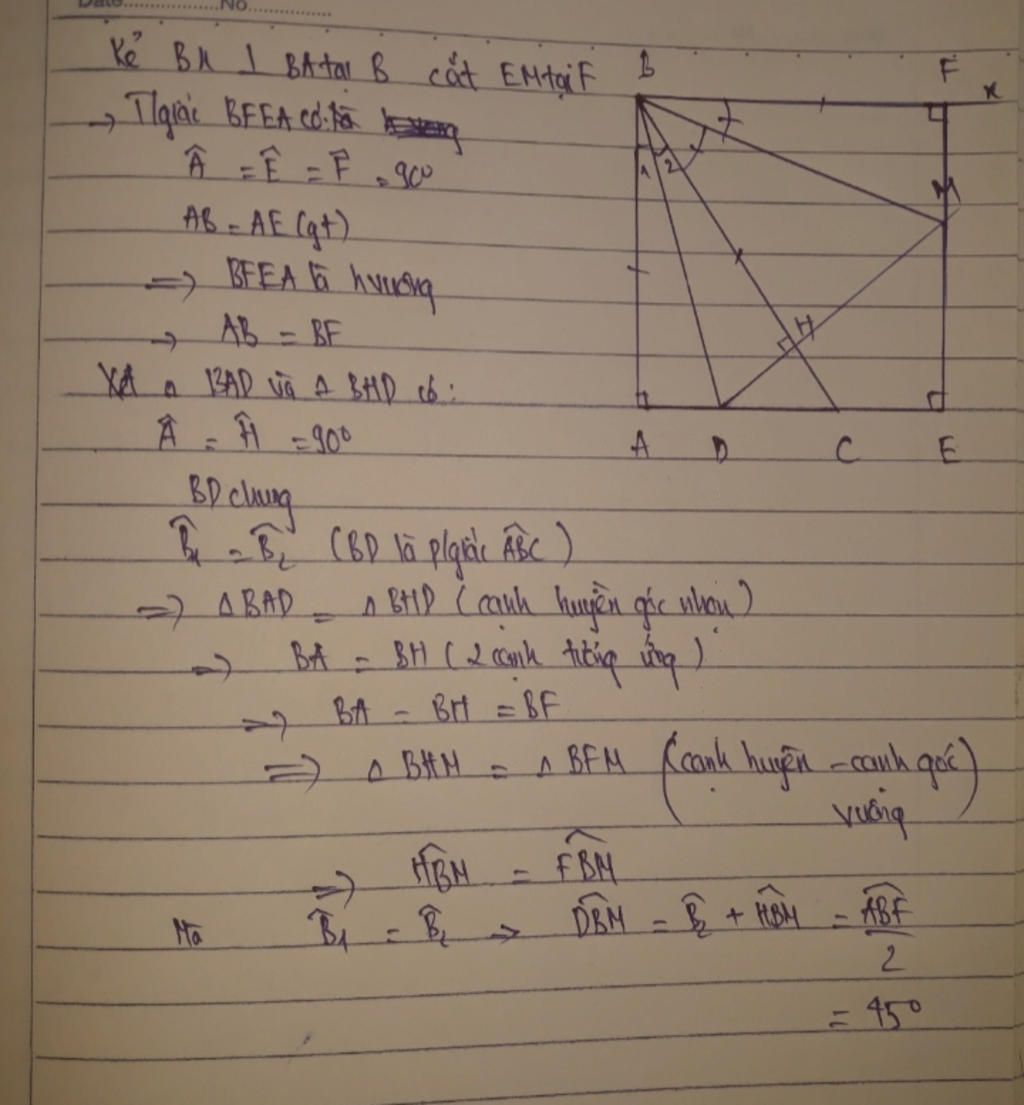 Date................No................
Kẻ Bx ⊥ BA tại B cắt EM tại F
→ T/giác BFEA có:
Â = Ê = F̂ = 90°
AB = AE (gt)
=> BFEA là hvuông
→ AB = BF
Xét △ BAD và △ BHD có:
Â = Ĥ = 90°
BD chung
B̂₁ = B̂₂ (BD là p/giác ABC)
=> △ BAD = △ BHD (cạnh huyền góc nhọn)
→ BA = BH (2 cạnh tương ứng)
=> BA = BH = BF
=> △ BHM = △ BFM (cạnh huyền - cạnh góc
vuông)
=> HBM = FBM
Mà B̂₁ = B̂₂ → DBM = B̂₂ + HBM = ABF/2
= 45°
B F x
1 2
M
H
A D C E